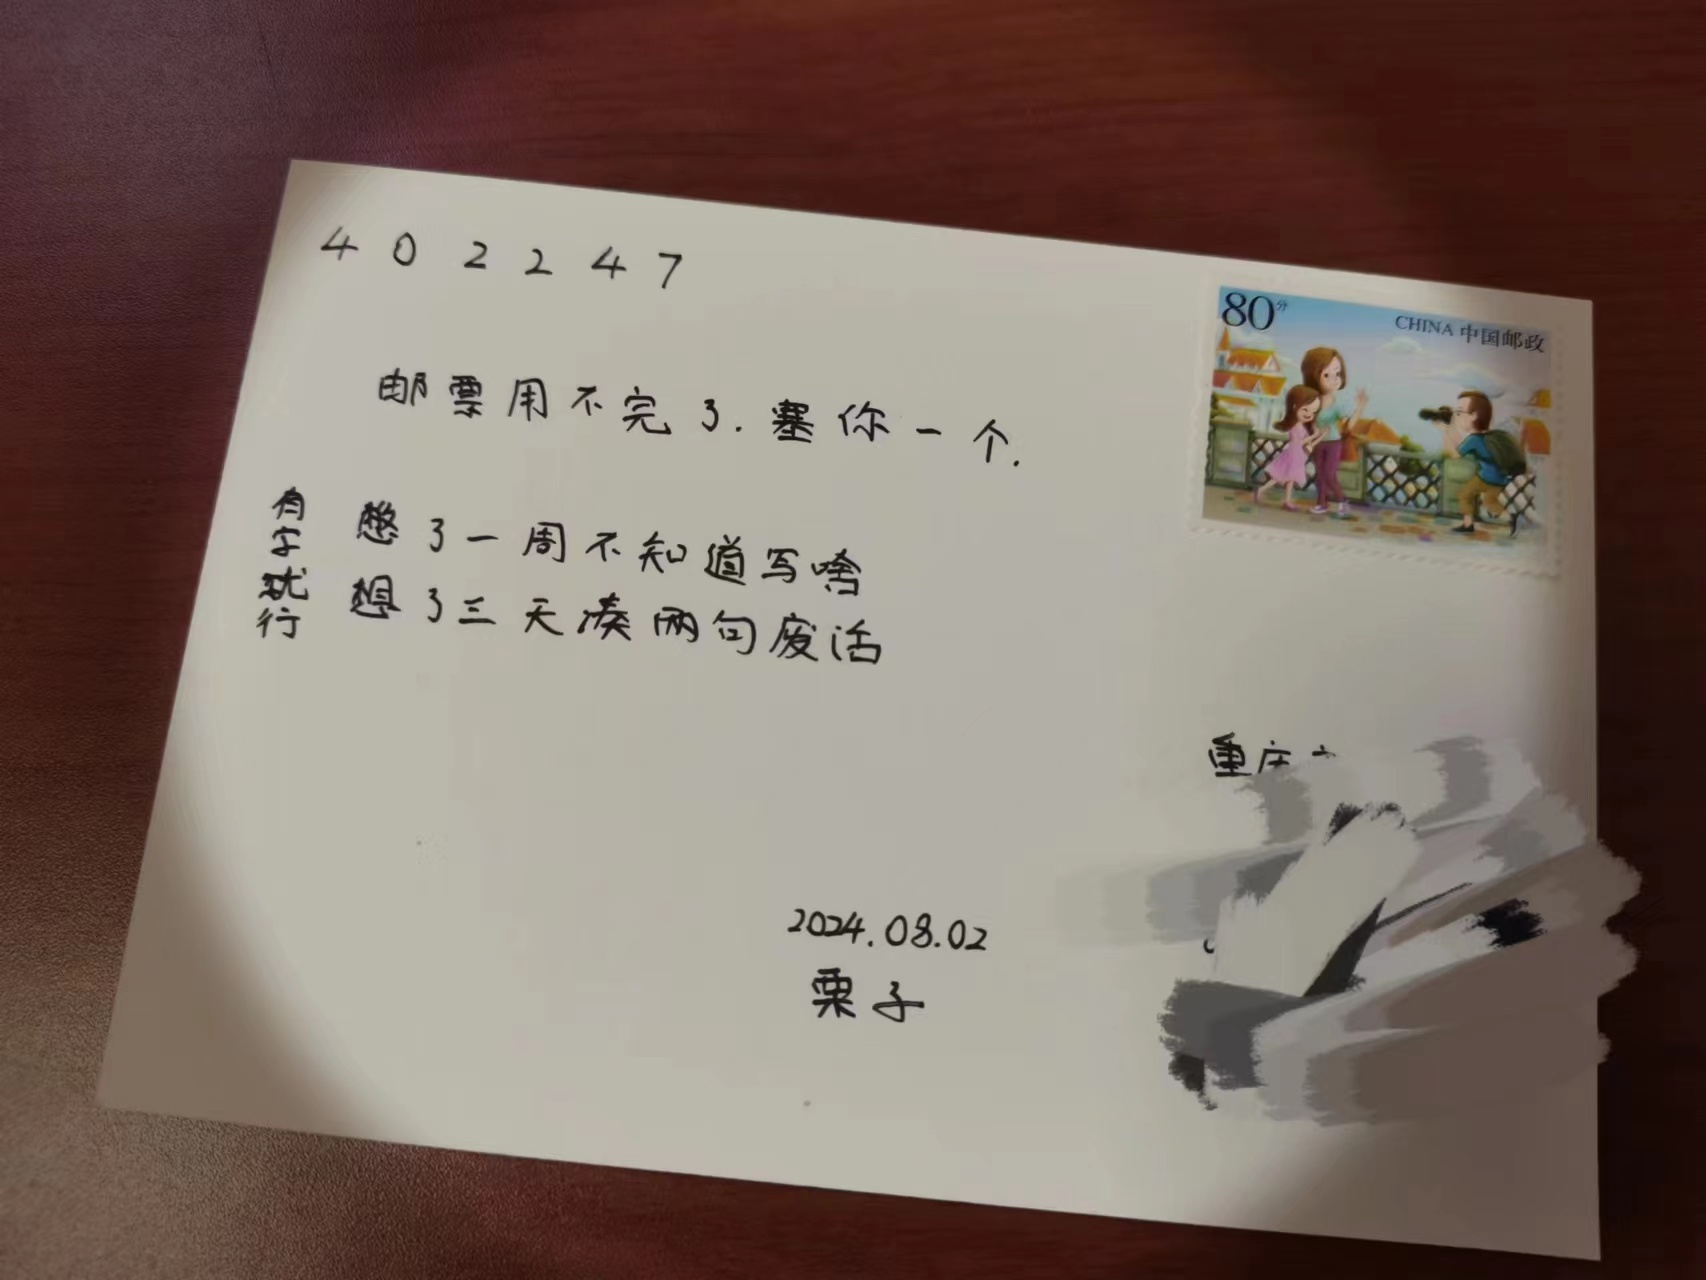 402247
80分
CHINA 中国邮政
邮票用不完了.塞你一个.
有字就行
憋了一周不知道写啥
想了三天凑两句废话
重庆市
2024.08.02
栗子